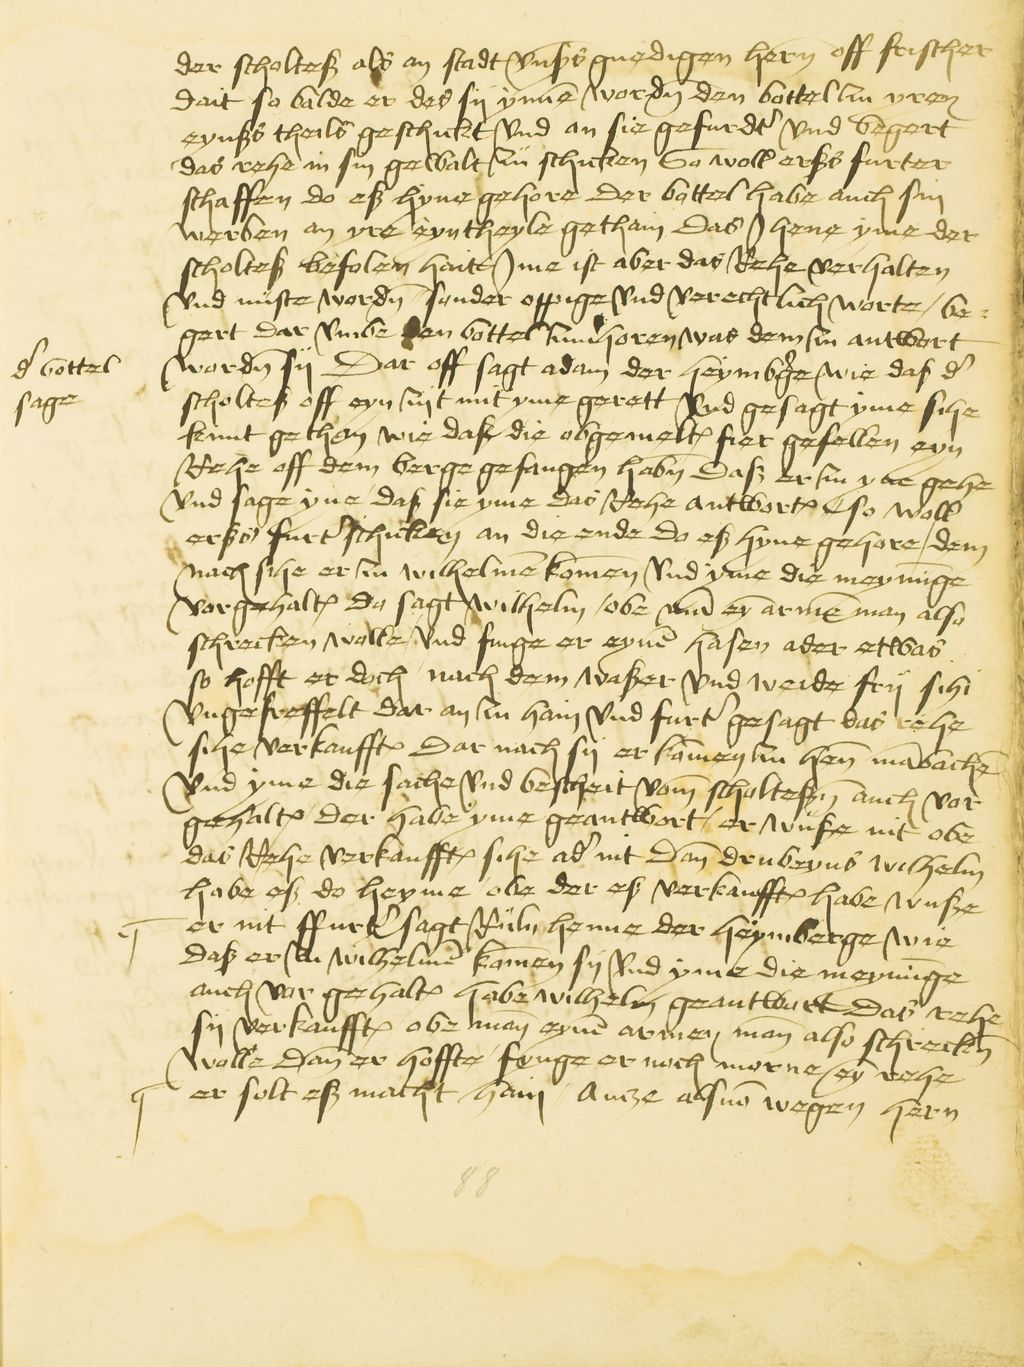 der scholteß als an stadt vnsers gnedigen hern off frischer
dait so balde er des sij ynne wordn den bottel zu yren
eynßs theils geschickt vnd an sie gefurdt vnd begert
das rehe in sin gewalt zu schicken So woll erßs furter
schaffen do eß hyne gehore der bottel habe auch sin
werben an yre eyntheyle gethain Das Jhene yme der
scholteß befolen haite Jme ist aber das Rehe verhalten
vnd nuste wordn sonder oppige vnd verechtlich worte / be=
gert dar vmbe den bottel zuuerhoren was dem zu antwort
d' bottel
sage
wordn sij Dar off sagt adam der heymberge wie daß d'
scholteß off eyn zijt mit yme gerett vnd gesagt yme sihe
kunt gethan wie daß die obgemelten fier gesellen eyn
Rehe off dem berge gefangen habn Daß er zu yne gehe
vnd sage yne daß sie yme das Rehe antworten so woll
erßs furter schicken an die ende do eß hyne gehore / dem
nach sihe er zu wilhelmen komen vnd yme die meynunge
vorgehalten da sagt wilhelm / obe man eyn armen man also
schrecken wolle / vnd finge er eynen hasen ader etwas
so hofft er doch nach dem waßer vnd weide frij sihe
vngefreffelt dar an zu hain vnd furter gesagt das rehe
sihe verkaufft Dar nach sij er komen zu hen
vnd yme die sache vnd bescheit vom scholteßn auch vor
gehalten der habe yme geantwort / er wuße nit obe
das Rehe verkaufft sihe ader nit Dan drubeyns wilhelm
habe eß do heyme / obe der eß verkaufft habe wuße
er nit ffurter sagt henne der heymberge / wie
daß er zu wilhelmen komen sij vnd yme die meynunge
auch vor gehalten habe wilhelm geantwort Das rehe
sij verkaufft obe man eynen armen man also schrecken
wolle Dan er hoffte / fynge er noch morne / eyn rehe
er solt eß macht hain / wegen hern
88